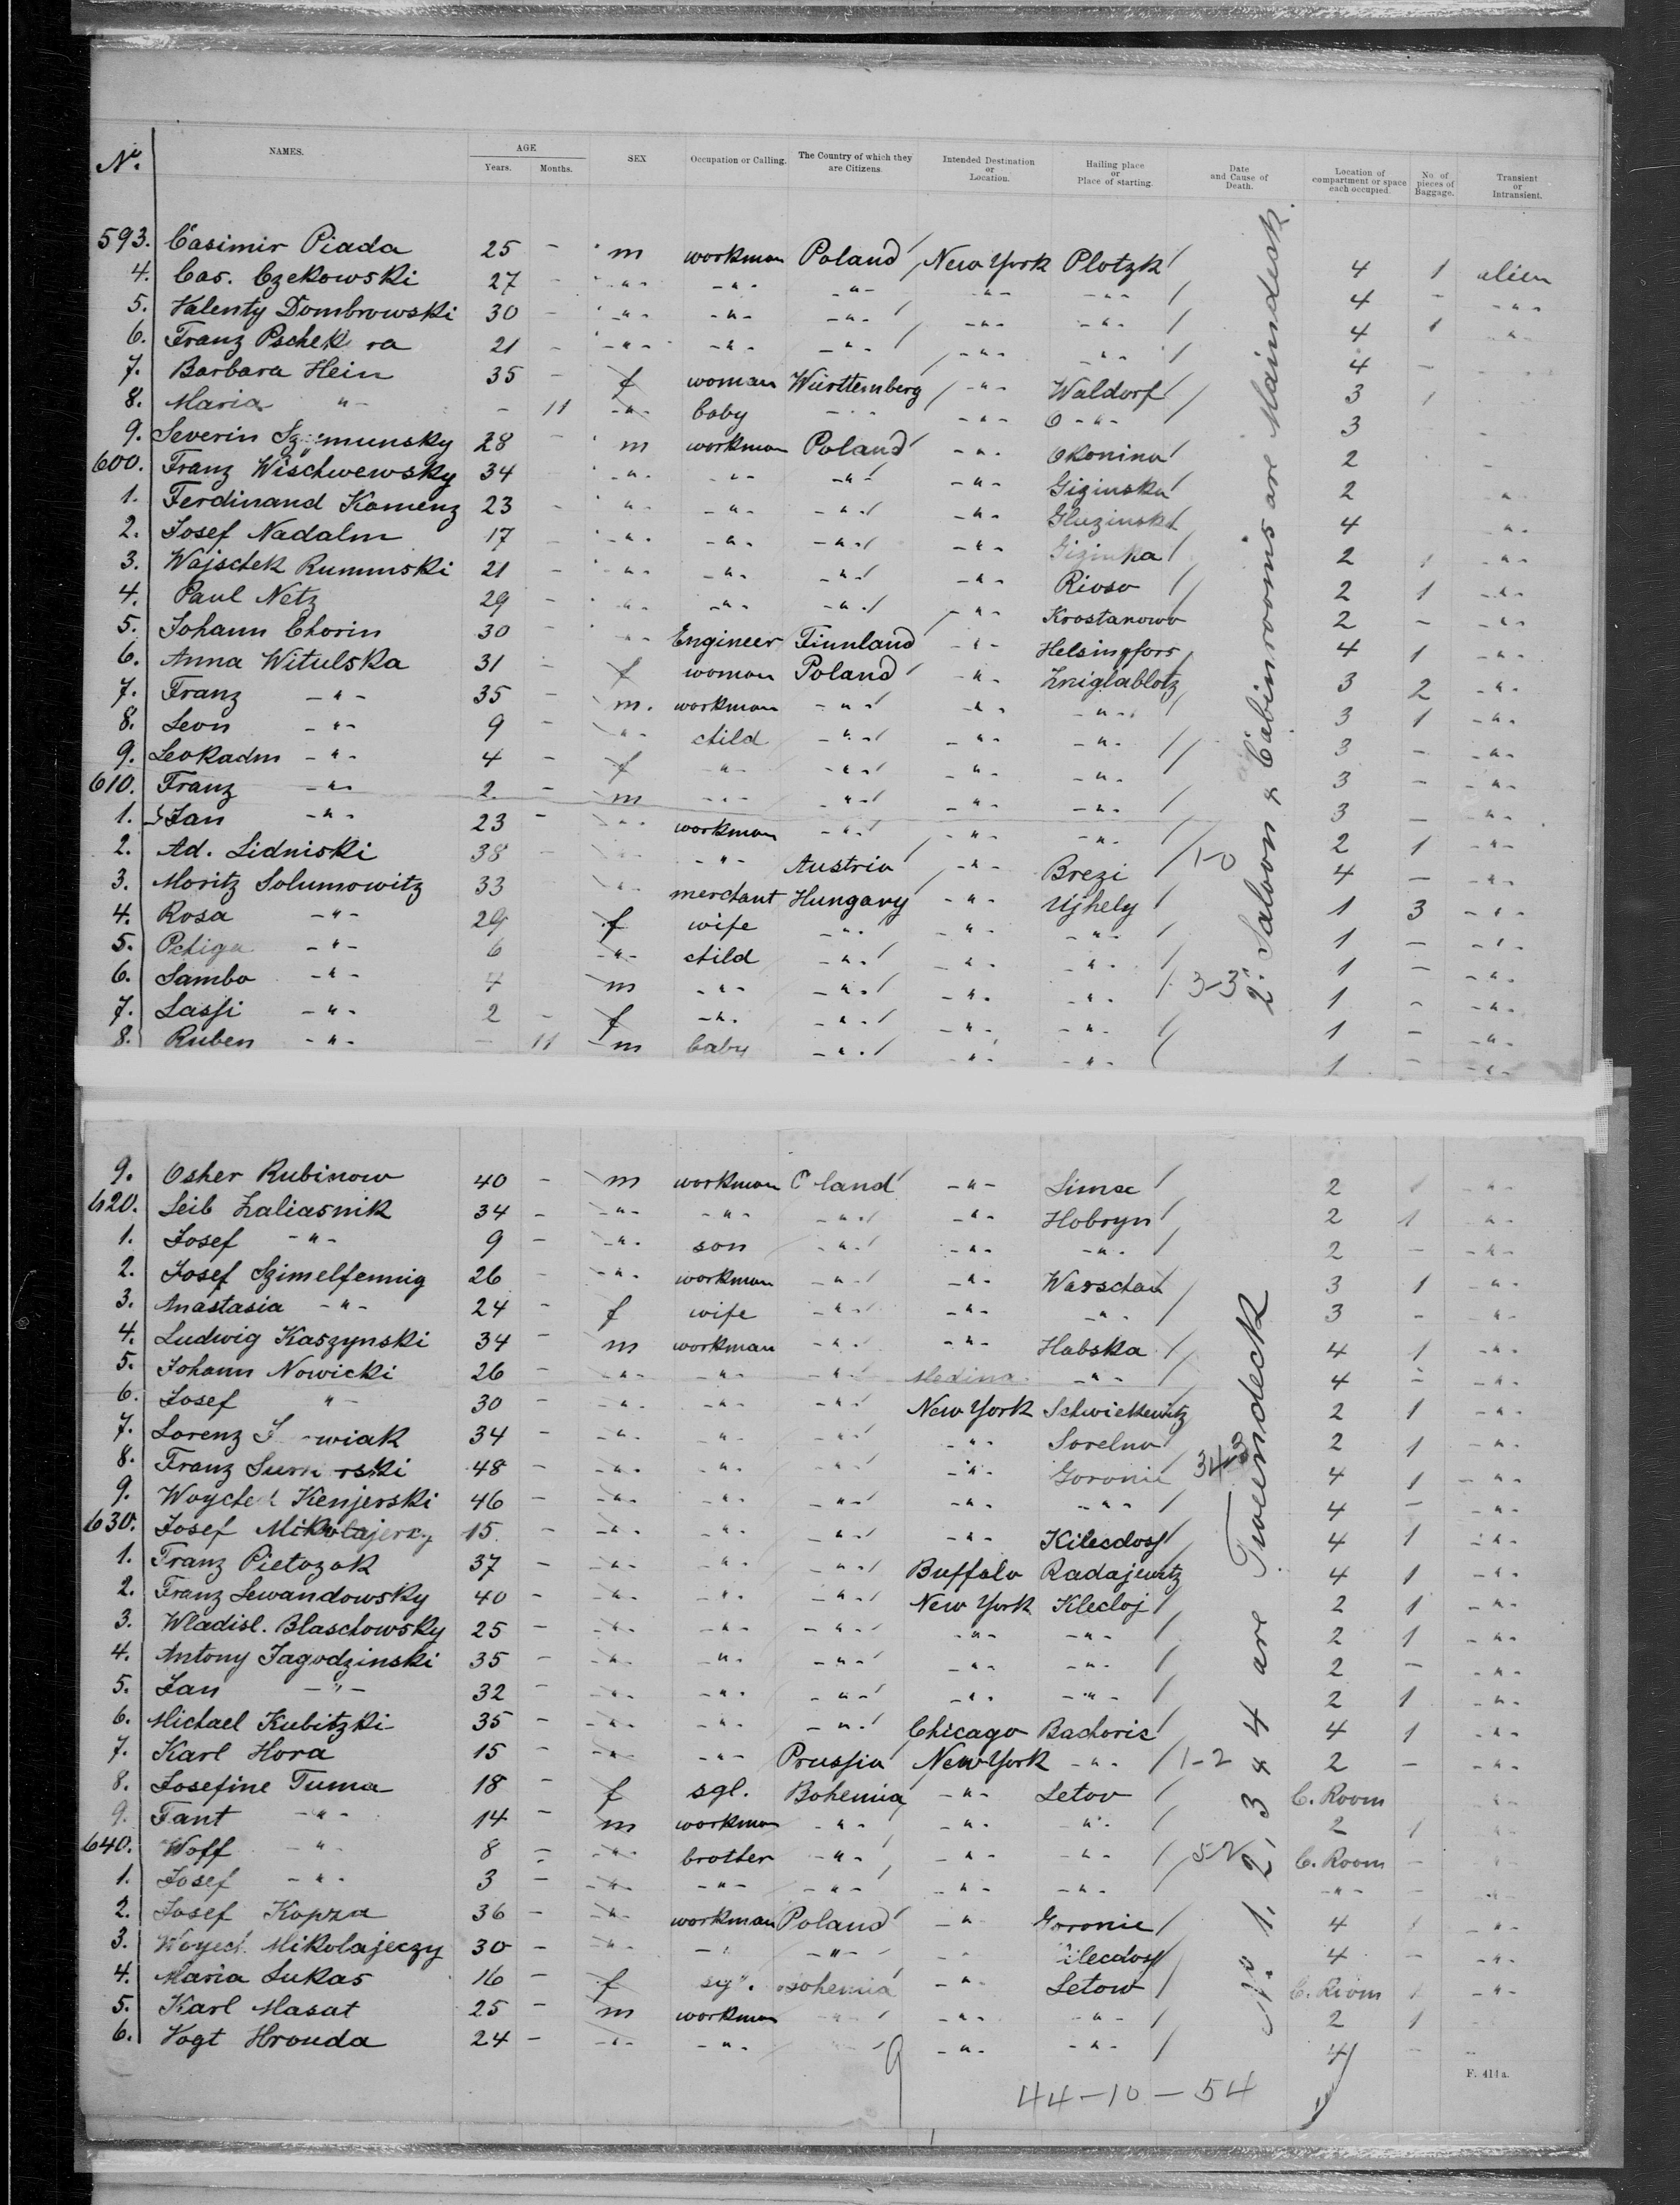 No. NAMES. AGE Years. Months. SEX Occupation or Calling. The Country of which they are Citizens. Intended Destination or Location. Hailing place or Place of starting. Date and Cause of Death. Location of compartment or space each occupied. No. of pieces of Baggage. Transient or Intransient.
593. Casimir Piada 25 - m workman Poland New York Plotzk 4 1 alien
4. Cas. Czekowski 27 - -"- -"- -"- -"- -"- 4 - -"-
5. Valenty Dombrowski 30 - -"- -"- -"- -"- -"- 4 1 -"-
6. Franz Pschek ra 21 - -"- -"- -"- -"- -"- 4 -
7. Barbara Hein 35 - f woman Württemberg -"- Waldorf 3 1
8. Maria -"- - 11 -"- baby -"- -"- -"- 3
9. Severin 28 - m workman Poland -"- Okonina 2
600. Franz Wischwewsky 34 -"- -"- -"- -"- Giziuska 2
1. Ferdinand Kamenz 23 - -"- -"- -"- -"- Gluzinska 4 -"-
2. Josef Nadalm 17 - -"- -"- -"- -"- 2 -"-
3. Wajschek Rumunski 21 - -"- -"- -"- -"- Rioso 2 1 -"-
4. Paul Netz 29 - -"- -"- -"- -"- Krostanowo 2 1 -"-
5. Johann Chorin 30 - -"- Engineer Finnland -"- Helsingfors 4 - -"-
6. Anna Witulska 31 - f woman Poland -"- Kniglablotz 3 1 -"-
7. Franz -"- 35 - m. workman -"- -"- -"- 3 2 -"-
8. Leon -"- 9 - -"- child -"- -"- -"- 3 1 -"-
9. Leokadm -"- 4 - f -"- -"- -"- -"- 3 - -"-
610. Franz -"- 2 - m -"- -"- -"- -"- 3 - -"-
1. Jan -"- 23 - -"- workman -"- -"- -"- 2 1 -"-
2. Ad. Lidniski 38 - -"- -"- Austria -"- Brezi 1-0 4 - -"-
3. Moritz Solumowitz 33 -"- merchant Hungary -"- Ujhely 1 3 -"-
4. Rosa -"- 29 f wife -"- -"- -"- 1 - -"-
5. -"- 6 -"- child -"- -"- -"- 1 - -"-
6. Sambo -"- 4 m -"- -"- -"- -"- 3-3 1 - -"-
7. Lassi -"- 2 - f -"- -"- -"- -"- 1 - -"-
8. Ruben -"- - 11 m baby -"- -"- -"- 1 - -"-
2. Saloon & Cabinrooms are Maindeck.
9. Osher Rubinow 40 - m workman land -"- Simae 2 1 -"-
620. Leib Zaliasnik 34 - -"- -"- -"- -"- Hobryn 2 1 -"-
1. Josef -"- 9 - -"- son -"- -"- -"- 2 - -"-
2. Josef Szimelfennig 26 - -"- workman -"- -"- Warschau 3 1 -"-
3. Anastasia -"- 24 - f wife -"- -"- -"- 3 - -"-
4. Ludwig Kaszynski 34 - m workman -"- -"- Habska 4 1 -"-
5. Johann Nowicki 26 - -"- -"- -"- Medina -"- 4 - -"-
6. Josef -"- 30 - -"- -"- -"- New York Schwiekewitz 2 1 -"-
7. Lorenz wiak 34 - -"- -"- -"- -"- Sorelno 2 1 -"-
8. Franz 48 - -"- -"- -"- -"- Goronie 4 1 -"-
9. Kenjerski 46 - -"- -"- -"- -"- -"- 4 - -"-
630. Josef Mikolajerzy 15 - -"- -"- -"- -"- Kilecdosf 4 1 -"-
1. Franz Pietozak 37 - -"- -"- -"- Buffalo Radajewitz 4 1 -"-
2. Franz Lewandowsky 40 - -"- -"- -"- New York Klecloj 2 1 -"-
3. Wladisl. Blaschowsky 25 - -"- -"- -"- -"- -"- 2 1 -"-
4. Antony Jagodzinski 35 - -"- -"- -"- -"- -"- 2 - -"-
5. Jan -"- 32 - -"- -"- -"- -"- -"- 2 1 -"-
6. Michael Kubitzki 35 - -"- -"- -"- Chicago Bachoric 4 1 -"-
7. Karl Hora 15 - -"- -"- Prussia New York -"- 1-2 2 - -"-
8. Josefine Tuma 18 - f sgl. Bohemia -"- Letov C. Room -"-
9. Fant -"- 14 - m workman -"- -"- -"- 2 1 -"-
640. Woff -"- 8 - -"- brother -"- -"- -"- C. Room - -"-
1. Josef -"- 3 - -"- -"- -"- -"- -"- -"- - -"-
2. Josef Kopza 36 - -"- workman Poland -"- Goronie 4 1 -"-
3. Woyech. Mikolajeczy 30 - -"- -"- -"- -"- ilecdosf 4 - -"-
4. Maria Lukas 16 - f Bohemia -"- Letow C. Room 1 -"-
5. Karl Masat 25 - m workman -"- -"- -"- 2 1
6. Vogt Hronda 24 - -"- -"- -"- -"- 4 -
No. 1, 2, 3 & 4 are Tweendeck
9 44-10-54
F. 414a.